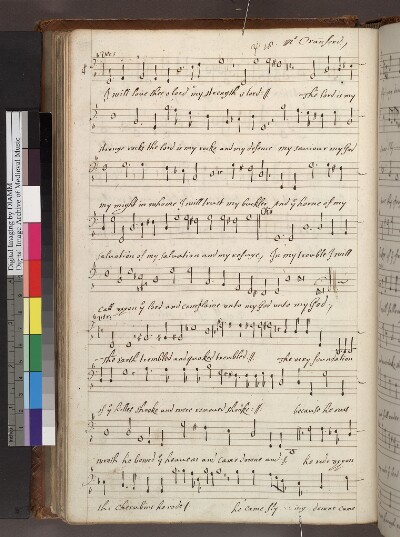 ps 18 Mr Cranford,
I will love thee o lord my strength o lord // the lord is my
stronge rocke the lord is my rocke and my defence my saviour my God
my might in whome I will trust my buckler and ye horne of my
salvation of my salvation and my refuge, In my trouble I will
call uppon ye lord and complaine unto my God unto my God,
The earth trembled and quaked trembled // the very foundation
of ye hilles shooke and were removed shooke // because he was
wroth he bowed ye heavens and came downe and // he rode uppon
the Cherubins he rode / he came fly downe came
Digital Imaging by DIAMM
Digital Image Archive of Medieval Music